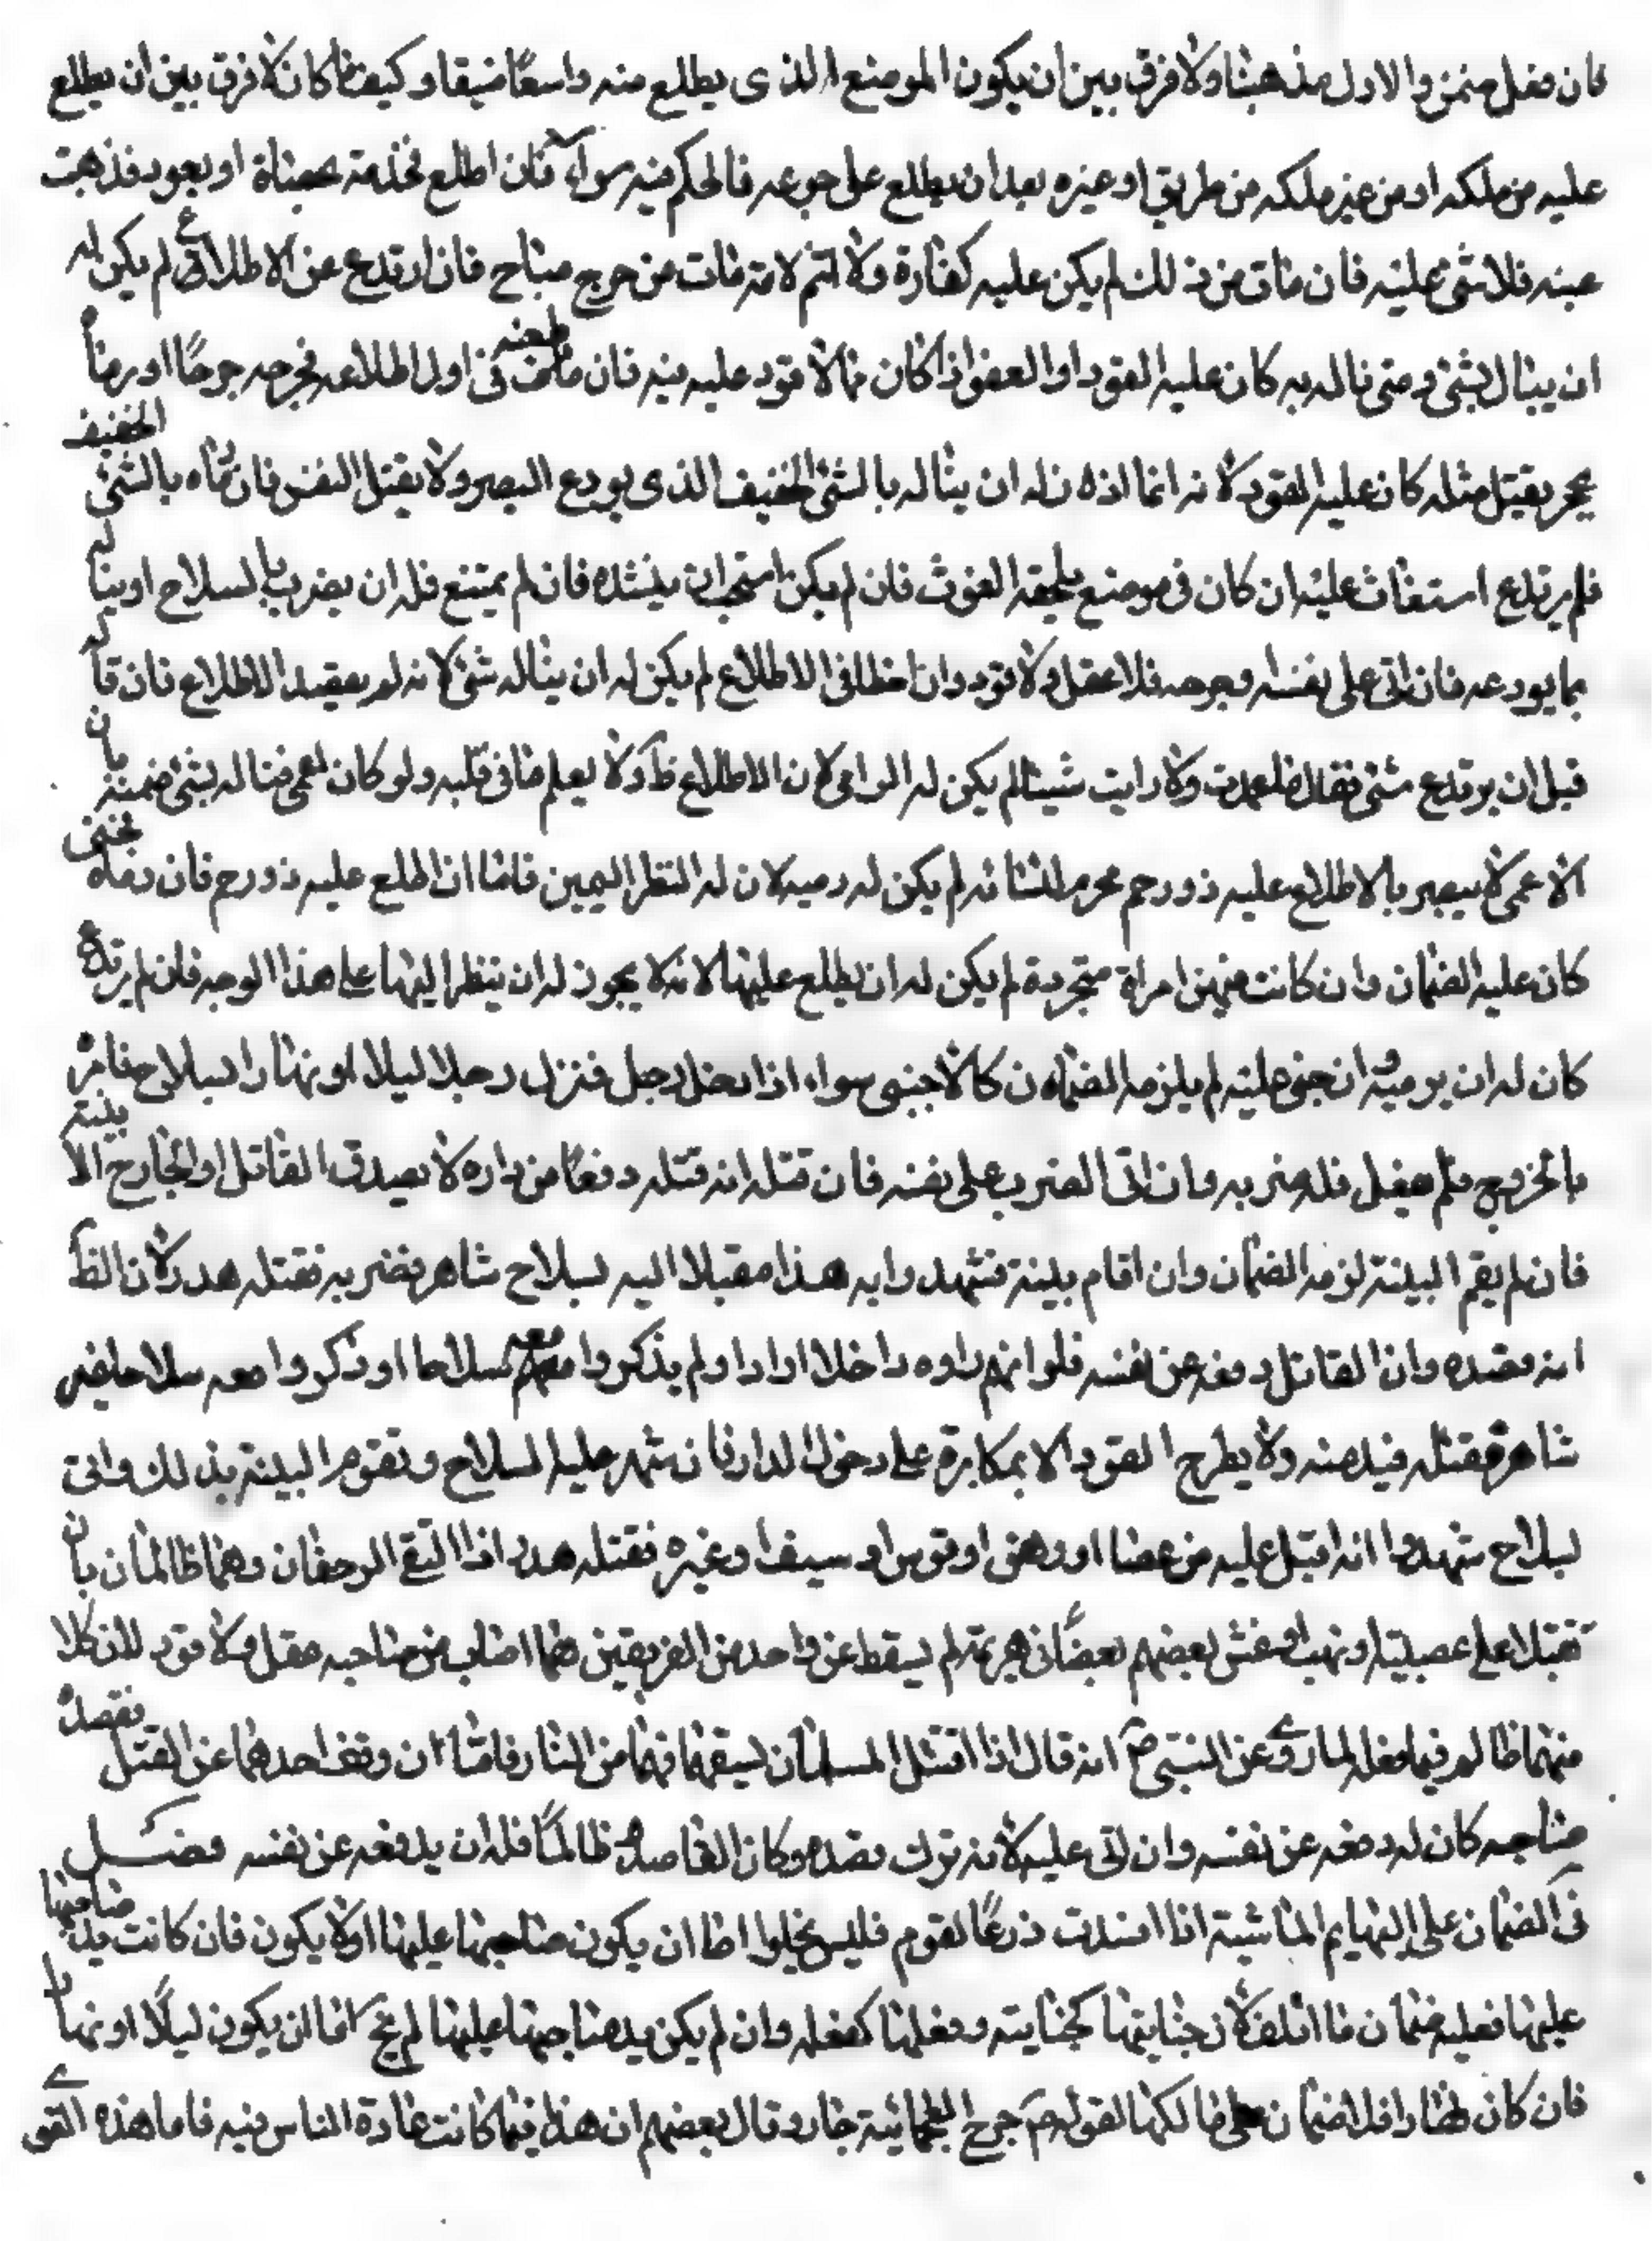 فان فعل ضمن والاول مذهبنا ولا فرق بين ان يكون الموضع الذى يطلع منه واسعًا ضيقا وكيف ما كان لا فرق بين ان يطلع
عليه من ملكه او من غير ملكه من طريق او غيره بعد ان يطلع على جوعه فالحكم فيه سواء فان اطلع فخذفه بحصاة او بعود فذهبت
عينه فلا شئ عليه فان مات من ذلك لم يكن عليه كفارة ولا اثم لانه مات من جرح مباح فان ارتدع عن الاطلاع لم يكن له
ان ينال بشئ ومتى ناله به كان عليه القود او العفو اذا كان مما لا قود عليه فيه فان طعنه فى اول اطلاعه فجرحه جرحًا او رماه
بحجر يقتل مثله كان عليه القود لانه انما اذن له ان يناله بالشئ الخفيف الذى يردع البصر ولا يقتل النفس فان رماه بالشئ الخفيف
فلم يرتدع استغاث عليه ان كان فى موضع يلحقه الغوث فان لم يكن استحب ان ينشده فان لم يمتنع فله ان يضرب بالسلاح او يناله
بما يردعه فان اتى على نفسه وجرحه فلا عقل ولا قود وان اخطا فى الاطلاع لم يكن له ان يناله شئ لانه لم يقصد الاطلاع فان قاله
قبل ان يرتدع بشئ فقال ما عمدت ولا رايت شيئا لم يكن له الرامى لان الاطلاع ظ ولا يعلم ما فى قلبه ولو كان اعمى فناله بشئ ضمنه لان
الاعمى لا يبصر بالاطلاع عليه ذو رحم محرم لنسائه لم يكن له رميه لان له النظر اليهن فاما ان اطلع عليه ذو رحم فان رماه فجنى
كان عليه الضمان وان كانت فيهن امراة متجردة لم يكن له ان يطلع عليها لانه لا يجوز له ان ينظر اليها على هذا الوجه فان لم يرتدع
كان له ان يرميه وان جنى عليه لم يلزمه الضمان كالاجنبى سواء اذا دخل رجل منزل رجل ليلا او نهارا بسلاح فامره
بالخروج فلم يفعل فله ضربه وان اتى الضرب على نفسه فان قتله انه قتله دفعًا من داره لا يصدق القاتل او الجارح الا بينة
فان لم يقم البينة لزمه الضمان وان اقام بينة تشهد رايه هذا مقبلا اليه بسلاح شاهر فضربه فقتله هدر لان الظ
انه قصده وان القاتل دفعه عن نفسه فلو انهم راوه داخلا دارا ولم يذكروا معه سلاحا او ذكروا معه سلاحا غير
شاهره فقتله قيد منه ولا يطرح القود الا بمكابرة على دخول الدار فان شهر عليه السلاح وتقوم البينة بذلك واتى
بسلاح شهدوا انه اقبل عليه من عصا او وهق او قوس او سيف او غيره فقتله هدر اذا التقى الرجلان وهما ظالمان بان
تقتلا على عصبية او نهب او غش بعضهم بعضًا فى هزيمة لم يسقط عن واحد من الفريقين مما اصاب من صاحبه عقل ولا قود لان كلا
منهما ظالم فيما فعله لما روى عن النبى ص انه قال اذا اقتتل المسلمان بسيفهما فهما من النار فاما ان وقف احدهما عن القتل فقصده
صاحبه كان له دفعه عن نفسه وان اتى عليه لانه ترك قصده وكان القاصد ظالمًا فله ان يدفعه عن نفسه فصل
فى الضمان على البهايم الماشية اذا افسدت زرعًا لقوم فليس يخلوا اما ان يكون صاحبها عليها او لا يكون فان كانت يد صاحبها
عليها فعليه ضمان ما اتلف لان جنايتها كجنايته وفعلها كفعله وان لم يكن يد صاحبها عليها لم يخ اما ان يكون ليلًا او نهارا
فان كان نهارا فلا ضمان على مالكها لقوله ص جرح العجمائية جبار وقال بعضهم ان هذا فيما كانت عادة الناس فيه فاما هذه القرى